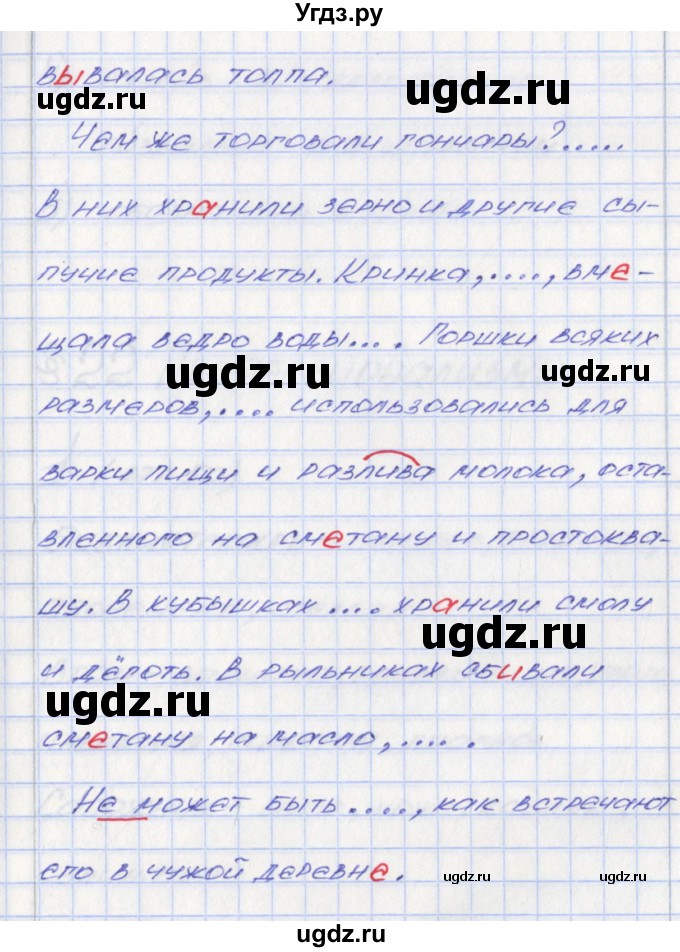 Угдз.ру
вывалась толпа.
ugdz.ru
ugdz.ru
Чем же торговали гончары?.....
В них хранили зерно и другие сы-
пучие продукты. Кринка,...., вме-
щала ведро воды.... Горшки всяких
ugdz.ru
ugdz.ru
размеров,.... использовались для
варки пищи и разлива молока, оста-
вленного на сметану и простоква-
шу. В кубышках .... хранили смолу
ugdz.ru
и дёготь. В рыльниках сбивали
ugdz.ru
сметану на масло,.... .
Не может быть ...., как встречают
его в чужой деревне.
ugdz.ru
ugdz.ru
ugdz.ru